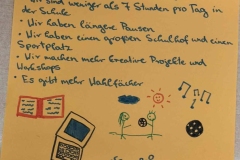 • Wir sind weniger als 7 Stunden pro Tag in
der Schule
• Wir haben längere Pausen
• Wir haben einen großen Schulhof und einen
Sportplatz
• Wir machen mehr kreative Projekte und
Workshops
• Es gibt mehr Wahlfächer